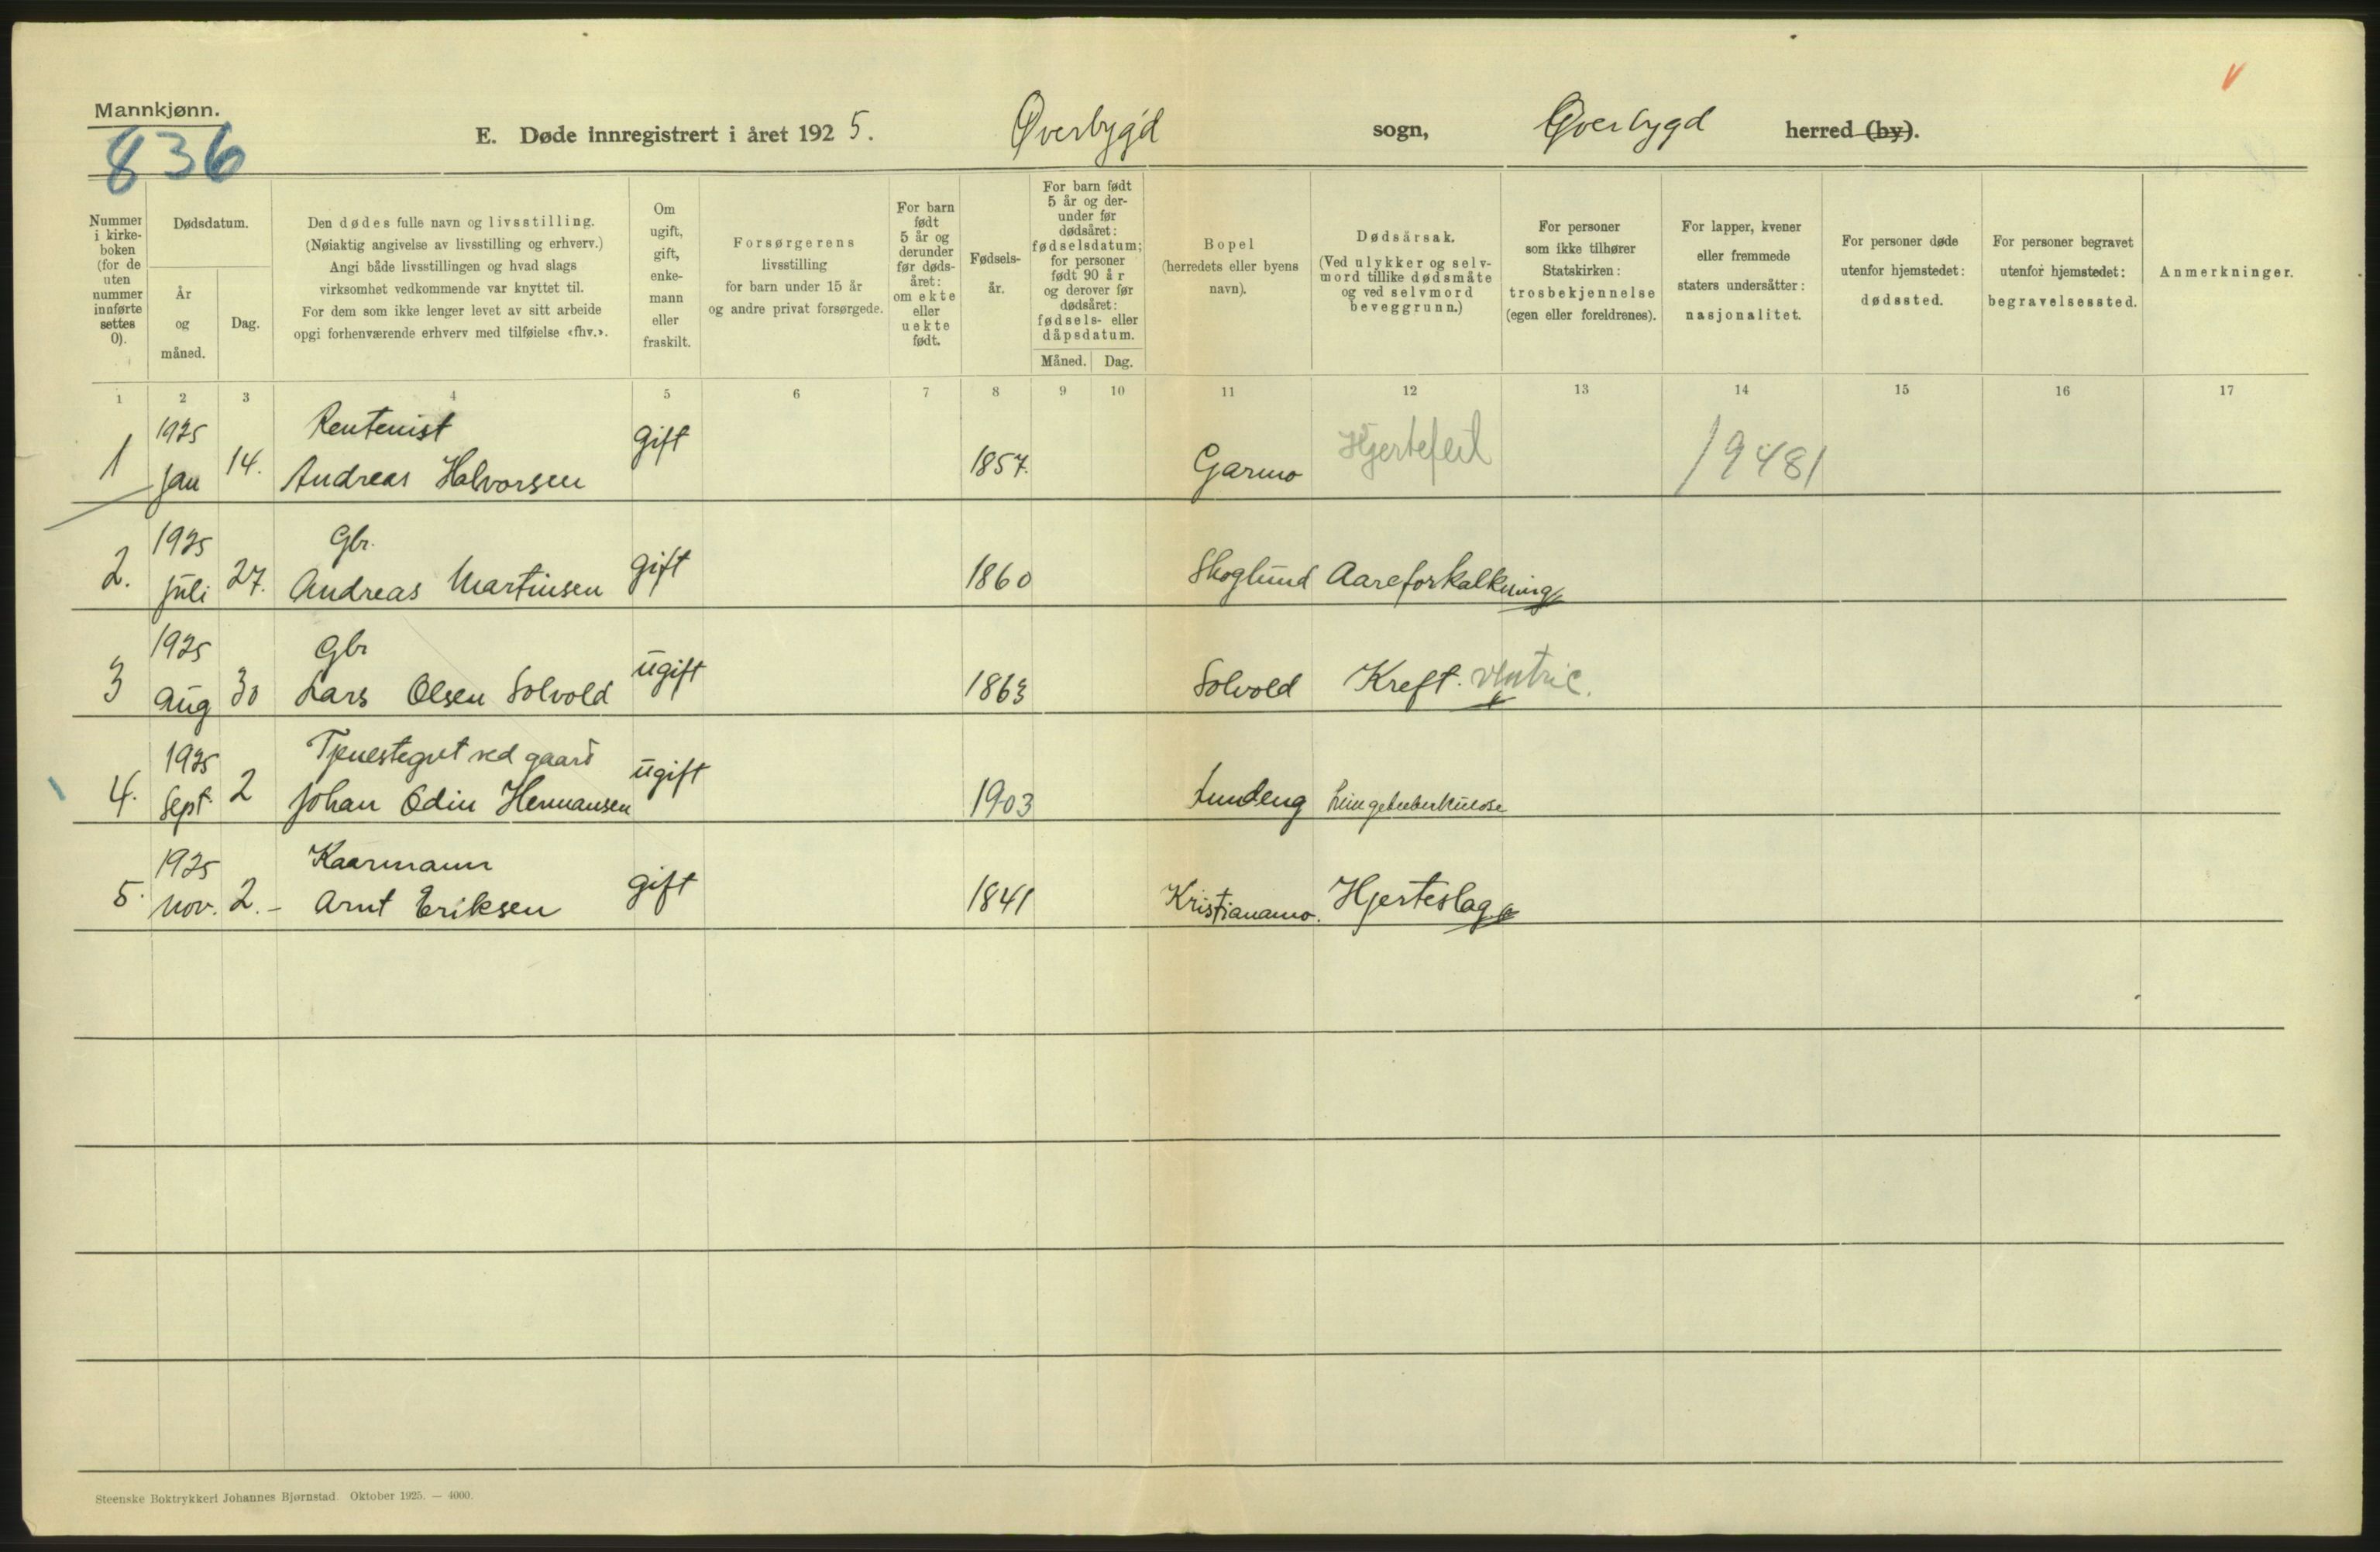 Mannkjønn.
836
E. Døde innregistrert i året 1925. Øverbygd sogn, Øverbygd herred (by).
Nummer i kirke- boken (for de uten nummer innførte settes 0).
Dødsdatum.
År og måned.
Dag.
Den dødes fulle navn og livsstilling.
(Nøiaktig angivelse av livsstilling og erhverv.)
Angi både livsstillingen og hvad slags
virksomhet vedkommende var knyttet til.
For dem som ikke lenger levet av sitt arbeide
opgi forhenværende erhverv med tilføielse «fhv.».
Om ugift, gift, enke- mann eller fraskilt.
Forsørgerens
livsstilling
for barn under 15 år
og andre privat forsørgede.
For barn født 5 år og derunder før døds- året: om ekte eller uekte født.
Fødsels- år.
For barn født 5 år og der- under før dødsåret: fødselsdatum; for personer født 90 år og derover før dødsåret: fødsels- eller dåpsdatum.
Måned. Dag.
Bopel
(herredets eller byens
navn).
Dødsårsak.
(Ved ulykker og selv-
mord tillike dødsmåte
og ved selvmord
beveggrunn.)
For personer
som ikke tilhører
Statskirken:
trosbekjennelse
(egen eller foreldrenes).
For lapper, kvener
eller fremmede
staters undersåtter:
nasjonalitet.
For personer døde
utenfor hjemstedet:
dødssted.
For personer begravet
utenfor hjemstedet:
begravelsessted.
Anmerkninger.
1 2 3 4 5 6 7 8 9 10 11 12 13 14 15 16 17
1925 Rentenist
1 Jan 14. Andreas Halvorsen gift 1857. Garmo Hjertefeil 19481
1925 Gbr.
2. Juli 27. Andreas Martinsen gift 1860 Skoglund Aareforkalkning
1925 Gbr
3 Aug 30 Lars Olsen Solvold ugift 1863 Solvold Kreft. Ventric.
1925 Tjenestegut ved gaard
4. Sept. 2 Johan Odin Hermansen ugift 1903 Lundeng Lungetuberkulose
1925 Kaarmann
5. Nov. 2.- Arnt Eriksen gift 1841 Kristianamo. Hjerteslag
Steenske Boktrykkeri Johannes Bjørnstad. Oktober 1925. — 4000.